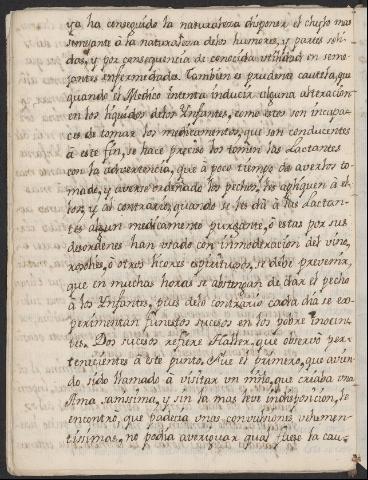 ya ha conseguido la naturaleza disponer el chylo mas
semejante à la naturaleza delos humores, y partes soli-
das, y por consequencia de conocida utilidad en seme-
jantes enfermedades. Tambien es prudente cautela, que
quando el Medico intenta inducir alguna alteracion
en los liquidos delos Ynfantes, como estos son incapa-
ces de tomar los medicamentos, que son conducentes
à este fin, se hace preciso los tomen las Lactantes
con la advertencia, que à poco tiempo de averlos to-
mado, y averse ordeñado los pechos, les apliquen à el-
los; y al contrario, quando se les dà à las Lactan-
tes algun medicamento purgante, ò estas por sus
desordenes han usado con inmoderacion del vino,
rosolies, ò otros licores espirituosos, se debe prevenir,
que en muchas horas se abstengan de dar el pecho
à los Ynfantes, pues delo contrario cada dia se ex-
perimentan funestos sucesos en los pobres inocen-
tes. Dos sucesos refiere Haller, que observò per-
tenecientes à este punto. Fue el primero, que avien-
do sido llamado à visitar un niño, que criaba una
Ama sanissima, y sin la mas leve indisposicion, se
encontrò que padecia unas convulsiones vehemen-
tissimas, no podia averiguar qual fuese la cau-